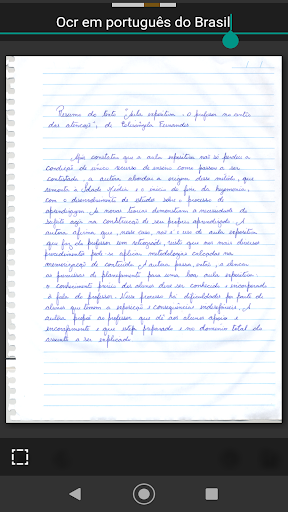 Ocr em português do Brasil
Resumo do texto "Aula expositiva: O professor no centro
das atenções", de Elisângela Fernandes
Após constatar que a aula expositiva não só perdeu a
condição de único recurso de ensino como passou a ser
contestada, a autora aborda a origem desse método, que
remonta à Idade Média e o início do fim da hegemonia,
com o desenvolvimento de estudos sobre o processo de
aprendizagem. As novas teorias demonstram a necessidade do
sujeito agir na construção de seu próprio aprendizado. A
autora afirma que, nesse caso, não é o uso de aula expositiva
que faz do professor um retrógrado, visto que nos mais diversos
procedimentos pode-se aplicar metodologias calcadas na
memorização de conteúdo. A autora passa, então, a elencar
as premissas do planejamento para uma boa aula expositiva:
o conhecimento prévio dos alunos deve ser conhecido e incorporado
à fala do professor. Nesse processo há dificuldades por parte de
alunos que temem a exposição e consequências indesejáveis. A
autora propõe ao professor que dê aos alunos apoio e
encorajamento e que esteja preparado e no domínio total do
assunto a ser explicado.